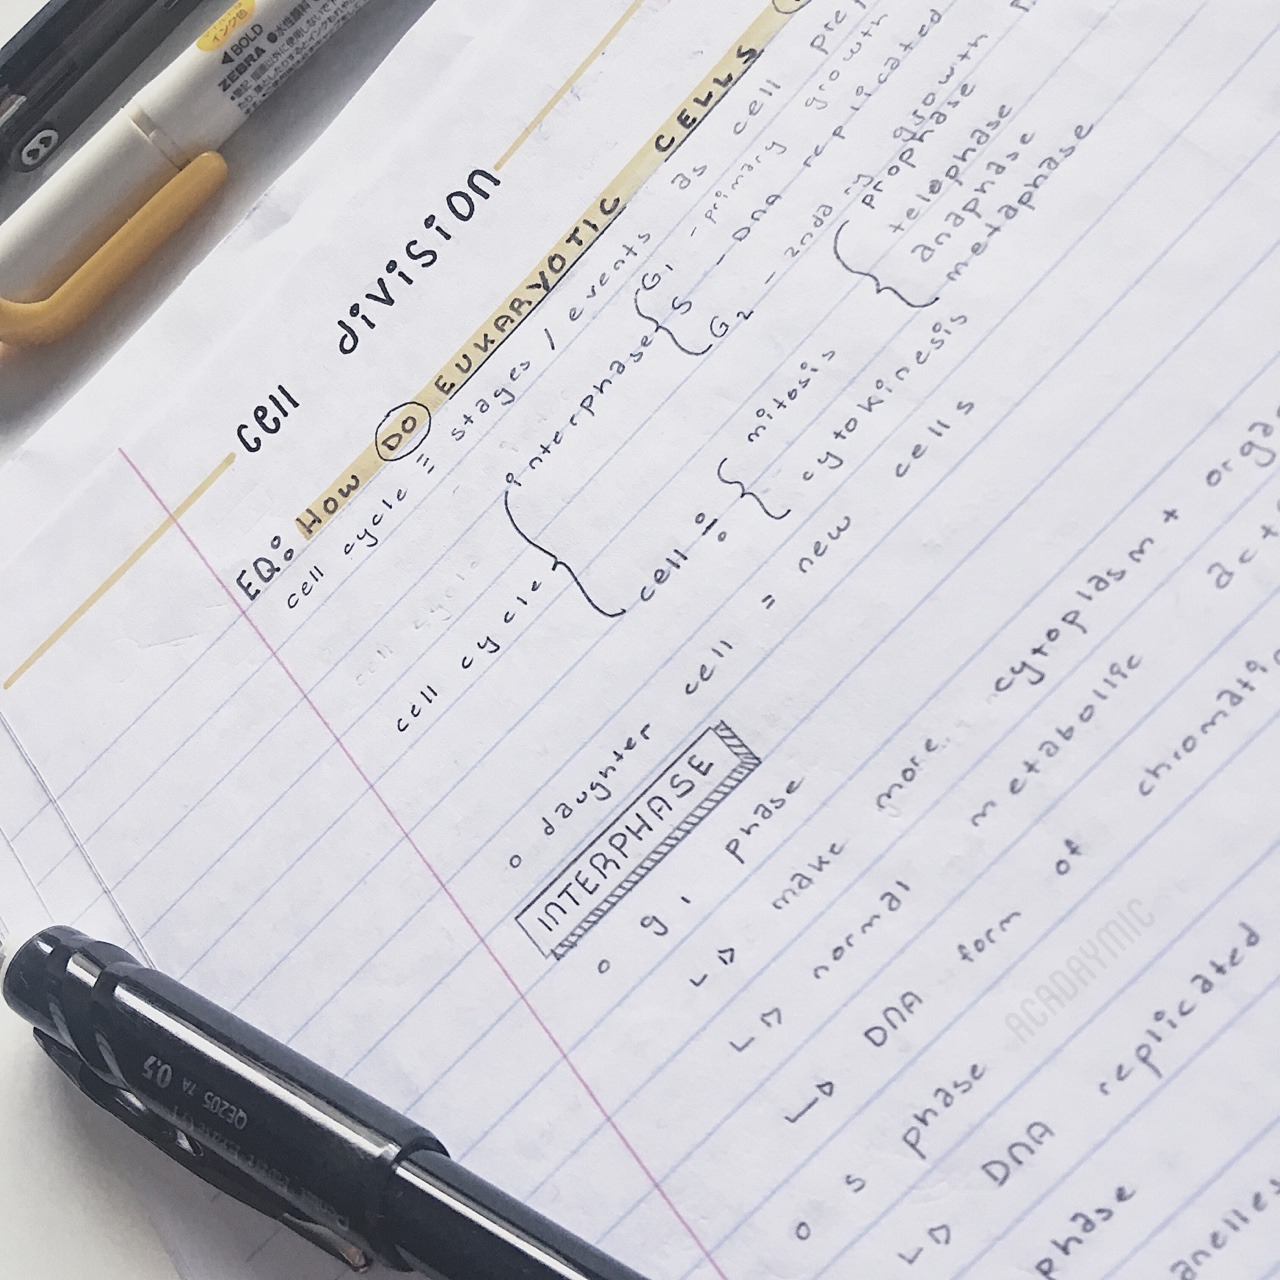 cell division
EQ: HOW DO EUKARYOTIC CELLS
cell cycle = stages / events as cell
cell cycle
interphase
G1 - primary growth
S - DNA replicated
G2 - 2ndary growth
cell ÷
mitosis
prophase
telephase
anaphase
metaphase
cytokinesis
cell cycle
o daughter cell = new cells
INTERPHASE
o g1 phase
↳ make more cytoplasm +
↳ normal metabolic
↳ DNA form of
o s phase
↳ DNA replicated
phase
ACADAYMIC
BOLD
ZEBRA
0.5
7A
QE205